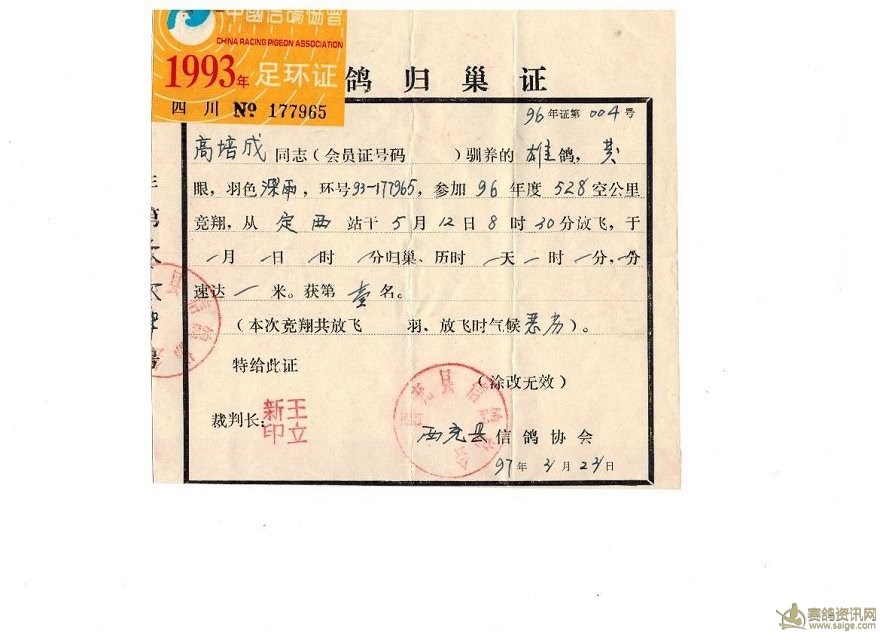 中國信鴿協會
CHINA RACING PIGEON ASSOCIATION
1993年 足环证
四川 № 177965
鸽归巢证
96年证第004号
高培成同志（会员证号码　　）驯养的雄鸽，黄
眼，羽色深雨，环号93-177965，参加96年度528空公里
竞翔，从定西站于5月12日8时30分放飞，于
/月/日/时/分归巢、历时/天/时/分，分
速达/米。获第壹名。
（本次竞翔共放飞　　羽、放飞时气候恶劣）。
特给此证
（涂改无效）
裁判长：
王立新印
西充县信鸽协会
97年3月23日
西充县信鸽协会
赛鸽资讯网
www.saige.com